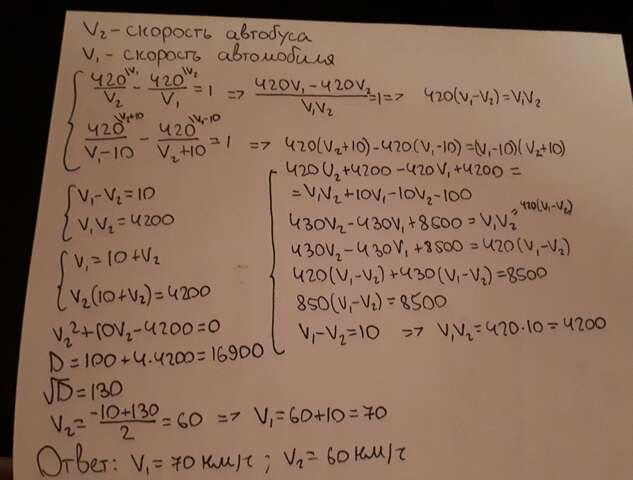 V₂ - скорость автобуса
V₁ - скорость автомобиля
420\V₁/V₂ - 420\V₂/V₁ = 1 => 420V₁ - 420V₂/V₁V₂ = 1 => 420(V₁-V₂) = V₁V₂
420\V₂+10/V₁-10 - 420\V₁-10/V₂+10 = 1 => 420(V₂+10) - 420(V₁-10) = (V₁-10)(V₂+10)
420V₂ + 4200 - 420V₁ + 4200 =
= V₁V₂ + 10V₁ - 10V₂ - 100
430V₂ - 430V₁ + 8500 = V₁V₂ = 420(V₁-V₂)
430V₂ - 430V₁ + 8500 = 420(V₁-V₂)
420(V₁-V₂) + 430(V₁-V₂) = 8500
850(V₁-V₂) = 8500
V₁-V₂ = 10 => V₁V₂ = 420·10 = 4200
V₁ - V₂ = 10
V₁V₂ = 4200
V₁ = 10 + V₂
V₂(10+V₂) = 4200
V₂² + 10V₂ - 4200 = 0
D = 100 + 4·4200 = 16900
√D = 130
V₂ = -10+130/2 = 60 => V₁ = 60+10 = 70
Ответ: V₁ = 70 км/ч ; V₂ = 60 км/ч